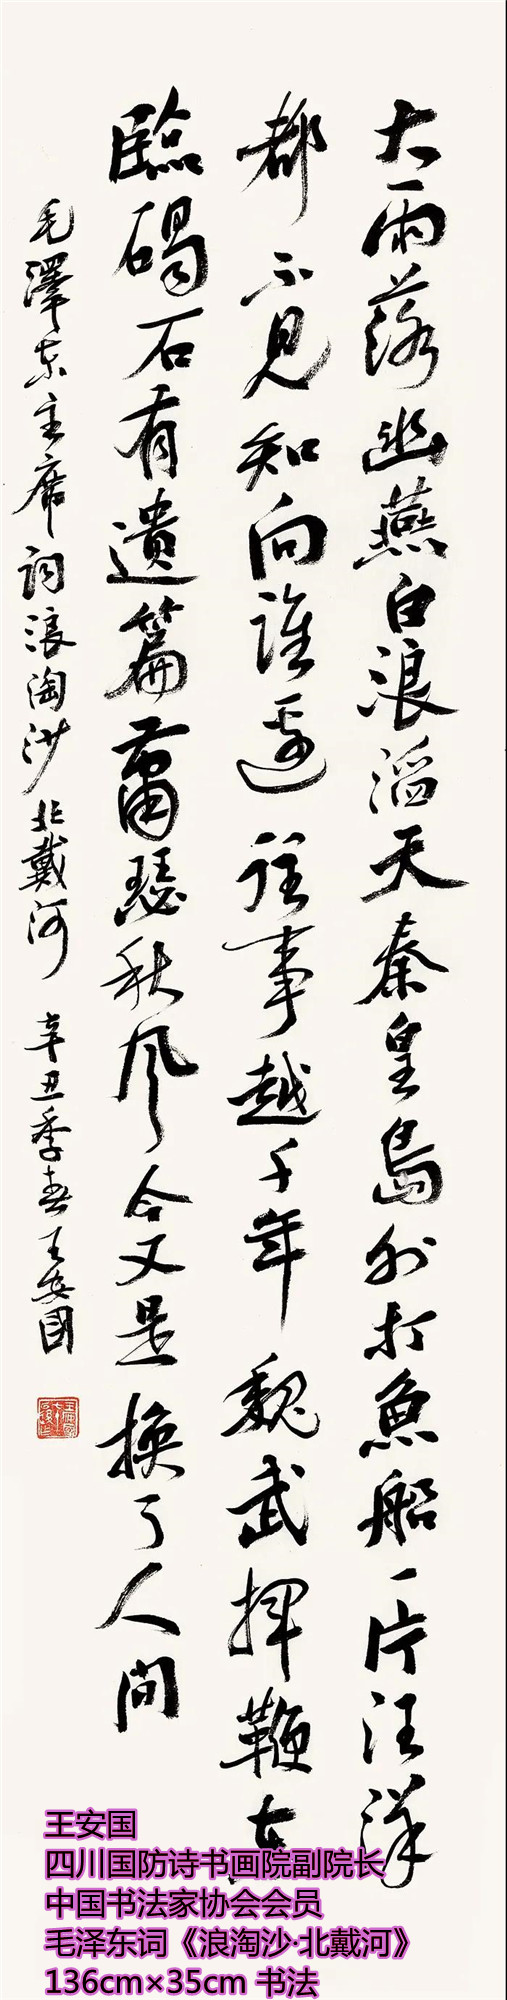 大雨落幽燕白浪滔天秦皇島外打魚船一片汪洋
都不見知向誰邊往事越千年魏武揮鞭東
臨碣石有遺篇蕭瑟秋風今又是換了人间
毛澤东主席词浪淘沙北戴河 辛丑季春王安國
王安国
四川国防诗书画院副院长
中国书法家协会会员
毛泽东词《浪淘沙·北戴河》
136cm×35cm 书法